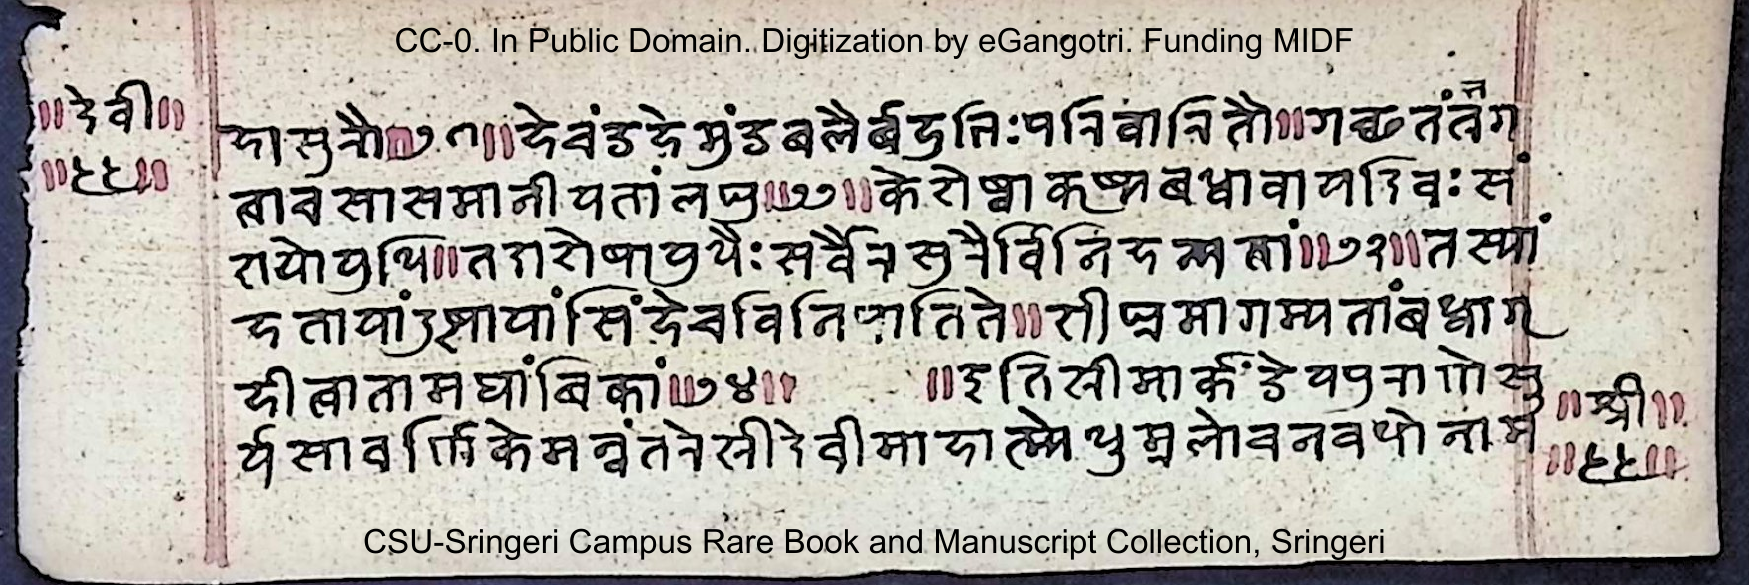 CC-0. In Public Domain. Digitization by eGangotri. Funding MIDF
॥देवी॥
॥६६॥
हासुरौ॥७१॥हेचंडहेमुंडबलैर्बहुभिःपरिवारितौ॥गछतंतत्रग
त्वाचसासमानीयतांलघु॥७२॥केशेष्वाकृष्यबध्वावायदिवःसं
शयोयुधि॥तदाशेषायुधैःसर्वैरसुरैर्विनिहन्यतां॥७३॥तस्यां
हतायांदुष्टायांसिंहेचविनिपातिते॥शीघ्रमागम्यतांबध्वागृ
हीत्वातामथांबिकां॥७४॥ ॥इतिश्रीमार्कंडेयपुराणेसू
र्यसावर्णिकेमन्वंतरेश्रीदेवीमाहात्म्येधुम्रलोचनवधोनाम
॥श्री॥
॥६६॥
CSU-Sringeri Campus Rare Book and Manuscript Collection, Sringeri